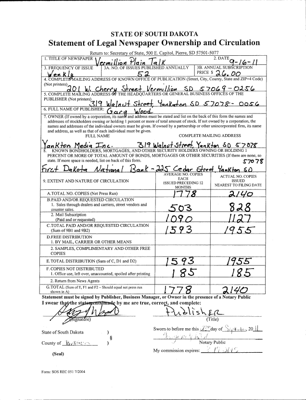 STATE OF SOUTH DAKOTA
Statement of Legal Newspaper Ownership and Circulation
Return to: Secretary of State, 500 E. Capitol, Pierre, SD 57501-5077
1. TITLE OF NEWSPAPER Vermillion Plain Talk 2. DATE 9-16-11
3. FREQUENCY OF ISSUE Weekly 3A. NO. OF ISSUES PUBLISHED ANNUALLY 52 3B. ANNUAL SUBSCRIPTION PRICE $ 26.00
4. COMPLETE MAILING ADDRESS OF KNOWN OFFICE OF PUBLICATION (Street, City, County, State and ZIP+4 Code)
(Not printers) 201 W. Cherry Street Vermillion SD 57069-0256
5. COMPLETE MAILING ADDRESS OF THE HEADQUARTERS OF GENERAL BUSINESS OFFICES OF THE
PUBLISHER (Not printer) 319 Walnut Street Yankton SD 57078-0056
6. PUBLISHER Gary Wood
7. OWNER (If owned by a corporation, its name and address must be stated and list on the back of this form the names and
addresses of stockholders owning or holding 1 percent or more of total amount of stock. If not owned by a corporation, the
names and addresses of the individual owners must be given. If owned by a partnership or other unincorporated firm, its name
and address, as well as that of each individual must be given.
FULL NAME COMPLETE MAILING ADDRESS
Yankton Media Inc. 319 Walnut Street, Yankton SD 57078
8. KNOWN BONDHOLDERS, MORTGAGEES, AND OTHER SECURITY HOLDERS OWNING OR HOLDING 1
PERCENT OR MORE OF TOTAL AMOUNT OF BONDS, MORTGAGES OR OTHER SECURITIES (If there are none, so
state. If more space is needed, list on back of this form. 57078
First Dakota National Bank - 225 Cedar Street, Yankton SD
9. EXTENT AND NATURE OF CIRCULATION AVERAGE NO. COPIES EACH ISSUE PRECEDING 12 MONTHS ACTUAL NO. COPIES ISSUED NEAREST TO FILING DATE
A. TOTAL NO. COPIES (Net Press Run) 1778 2140
B. PAID AND/OR REQUESTED CIRCULATION
1. Sales through dealers and carriers, street vendors and
counter sales. 503 828
2. Mail Subscription
(Paid and or requested) 1090 1127
C. TOTAL PAID AND/OR REQUESTED CIRCULATION
(Sum of 9B1 and 9B2) 1593 1955
D. FREE DISTRIBUTION
1. BY MAIL, CARRIER OR OTHER MEANS
2. SAMPLES, COMPLIMENTARY AND OTHER FREE
COPIES
E. TOTAL DISTRIBUTION (Sum of C, D1 and D2) 1593 1955
F. COPIES NOT DISTRIBUTED
1. Office use, left over, unaccounted, spoiled after printing 185 185
2. Return from News Agents
G. TOTAL (Sum of E, F1 and F2 - Should equal net press run
shown in A) 1778 2140
Statement must be signed by Publisher, Business Manager, or Owner in the presence of a Notary Public
I swear that the statements made by me are true, correct, and complete:
Publisher
(Title)
State of South Dakota )
County of )
(Seal)
Sworn to before me this day of
Notary Public
My commission expires:
Form: SOS REC 051 7/2004